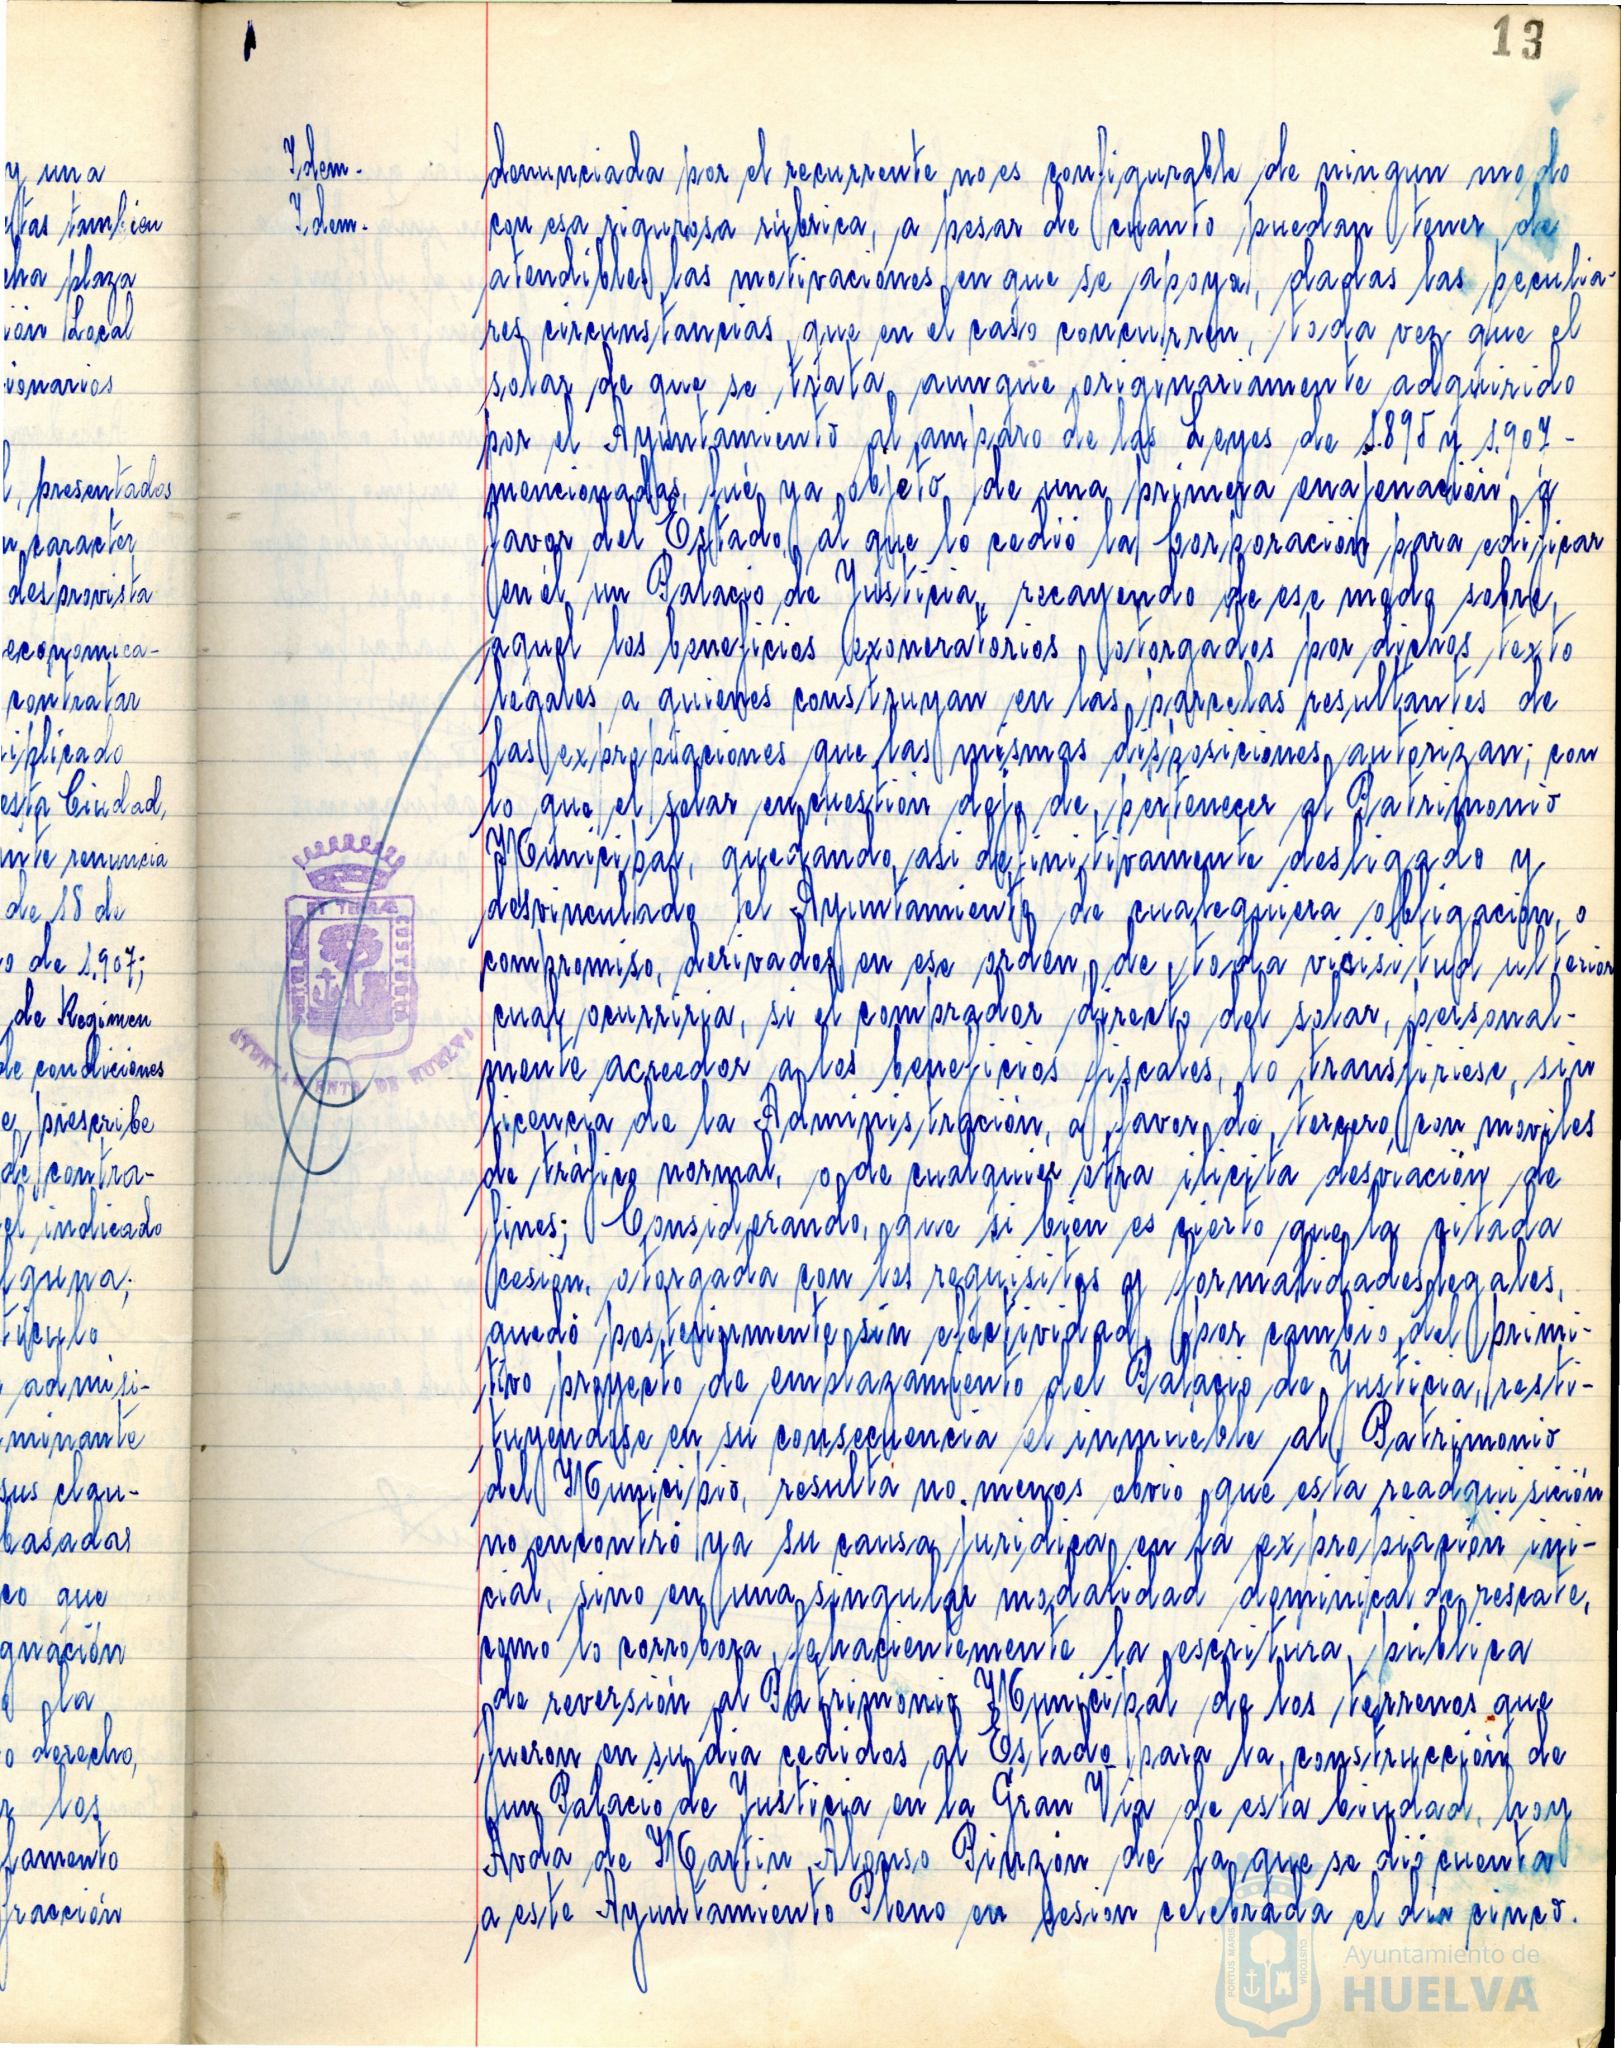 13
y una
tas tambien
cha plaza
ión Local
ionarios
presentados
caracter
desprovista
economica-
contratar
iplicado
esta Ciudad,
nte renuncia
de 18 de
o de 1.907;
de Regimen
de condiciones
e prescribe
de contra-
el indicado
guna;
ticulo
admisi-
minante
sus clau-
basadas
co que
gnación
la
o derecho,
los
lamento
fracción
Idem.
Idem.
denunciada por el recurrente no es configurable de ningun modo
con esa rigurosa rúbrica, a pesar de cuanto puedan tener de
atendibles las motivaciones en que se apoya, dadas las peculia-
res circunstancias que en el caso concurren, toda vez que el
solar de que se trata aunque originariamente adquirido
por el Ayuntamiento al amparo de las Leyes de 1.895 y 1.907-
mencionadas, fué ya objeto de una primera enajenación a
favor del Estado, al que lo cedió la Corporación para edificar
en él un Palacio de Justicia, recayendo de ese modo sobre
aquel los beneficios exoneratorios otorgados por dichos texto
legales a quienes construyan en las parcelas resultantes de
las expropiaciones que las mismas disposiciones autorizan; con
lo que el solar en cuestión dejo de pertenecer al Patrimonio
Municipal, quedando asi definitivamente desligado y
desvinculado el Ayuntamiento de cualequiera obligación, o
compromiso, derivados en ese orden, de toda vicisitud ulterior
cual ocurriria, si el comprador directo del solar, personal-
mente acreedor a los beneficios fiscales, lo transfiriese, sin
licencia de la Administración, a favor de tercero con moviles
de tráfico normal, o de cualquier otra ilicita desviación de
fines; Considerando, que si bien es cierto que la citada
cesión, otorgada con los requisitos y formalidades legales,
quedó posteriormente sin efectividad, por cambio del primi-
tivo proyecto de emplazamiento del Palacio de Justicia, resti-
tuyendose en su consecuencia el inmueble al Patrimonio
del Municipio, resulta no menos obvio que esta readquisición
no encontró ya su causa juridica en la expropiación ini-
cial, sino en una singular modalidad dominical de rescate,
como lo corrobora fehacientemente la escritura pública
de reversión al Patrimonio Municipal de los terrenos que
fueron en su dia cedidos al Estado para la construcción de
un Palacio de Justicia en la Gran Via de esta Ciudad, hoy
Avda de Martin Alonso Pinzón de la que se dió cuenta
a este Ayuntamiento Pleno en sesion celebrada el dia cinco.
AYUNTAMIENTO DE HUELVA
PORTUS MARIS
CUSTODIA
Ayuntamiento de
HUELVA